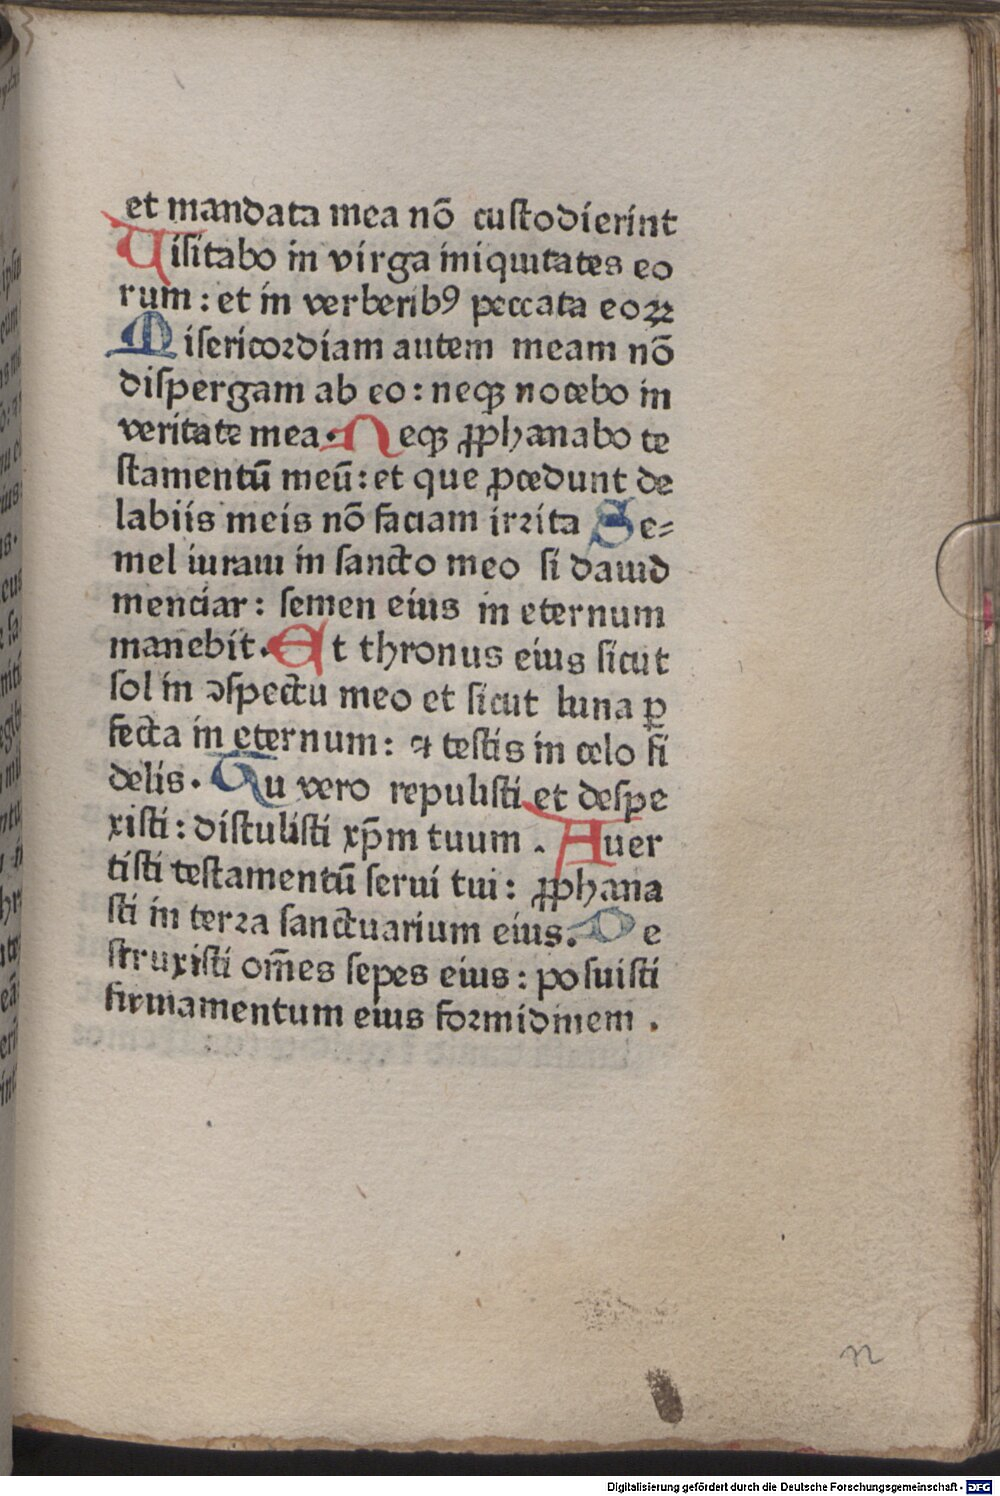 et mandata mea nō custodierint
Uisitabo in virga iniquitates eo
rum : et in verberibꝰ peccata eoꝝ
Misericordiam autem meam nō
dispergam ab eo : neqꝫ nocebo in
veritate mea. Neqꝫ ꝓphanabo te
stamentū meū : et que ꝓcedunt de
labiis meis nō faciam irrita Se-
mel iuraui in sancto meo si dauid
menciar : semen eius in eternum
manebit. Et thronus eius sicut
sol in ɔspectu meo et sicut luna ꝑ
fecta in eternum : ⁊ testis in celo fi
delis. Tu vero repulisti et despe
xisti : distulisti xp̄m tuum . Auer
tisti testamentū serui tui : ꝓphana
sti in terra sanctuarium eius. De
struxisti om̄es sepes eius : posuisti
firmamentum eius formidinem .
n
Digitalisierung gefördert durch die Deutsche Forschungsgemeinschaft - DFG